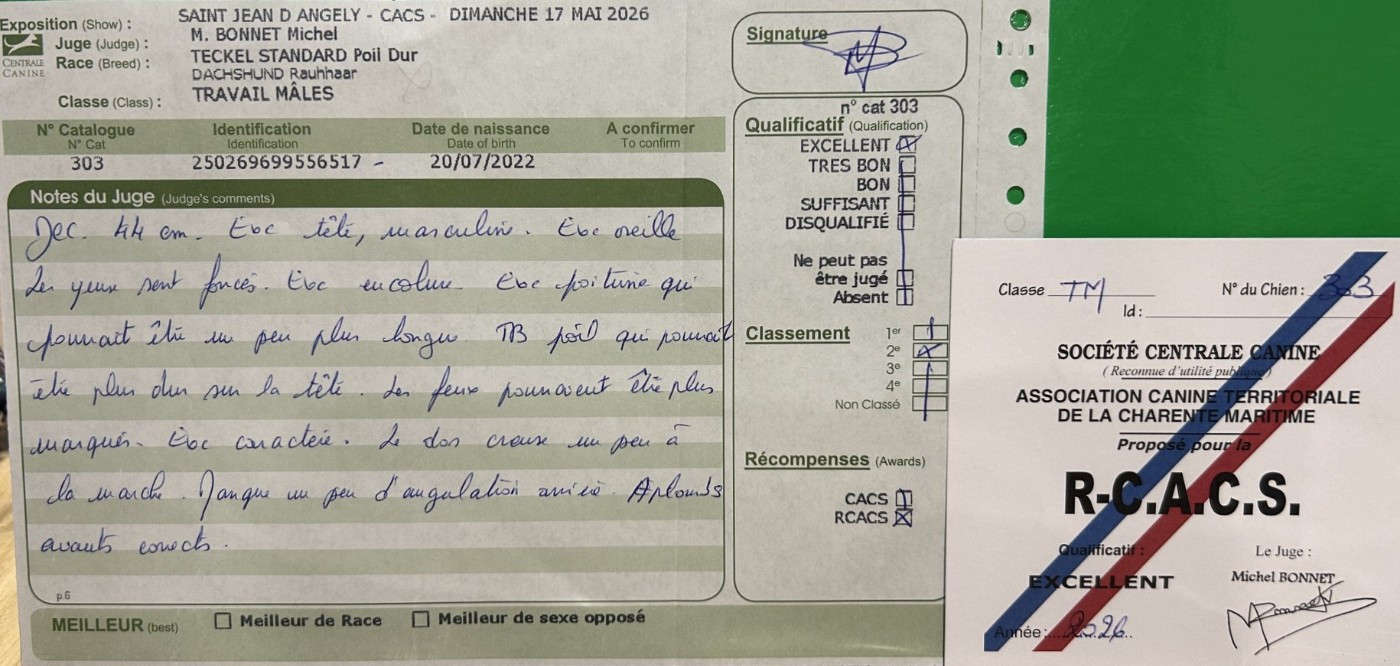 Exposition (Show) : SAINT JEAN D ANGELY - CACS - DIMANCHE 17 MAI 2026
CENTRALE CANINE
Juge (Judge) : M. BONNET Michel
Race (Breed) : TECKEL STANDARD Poil Dur
DACHSHUND Rauhhaar
Classe (Class) : TRAVAIL MÂLES
N° Catalogue Identification Date de naissance A confirmer
N° Cat Identification Date of birth To confirm
303 250269699556517 - 20/07/2022
Notes du Juge (Judge's comments)
44 cm. Exc tête, masculine. Exc oreille
Les yeux sont foncés. Exc encolure. Exc poitrine qui
pourrait être un peu plus longue. TB poil qui pourrait
être plus dur sur la tête. Les feux pourraient être plus
marqués. Exc caractère. Le dos creuse un peu à
la marche. Manque un peu d'angulation arrière. Aplombs
avants corrects.
p.6
MEILLEUR (best) Meilleur de Race Meilleur de sexe opposé
Signature
n° cat 303
Qualificatif (Qualification)
EXCELLENT
TRES BON
BON
SUFFISANT
DISQUALIFIÉ
Ne peut pas
être jugé
Absent
Classement 1er
2e
3e
4e
Non Classé
Récompenses (Awards)
CACS
RCACS
Classe TM N° du Chien : 303
Id :
SOCIÉTÉ CENTRALE CANINE
( Reconnue d'utilité publique )
ASSOCIATION CANINE TERRITORIALE
DE LA CHARENTE MARITIME
Proposé pour la
R-C.A.C.S.
Qualificatif : Le Juge :
EXCELLENT Michel BONNET
Année : 2026